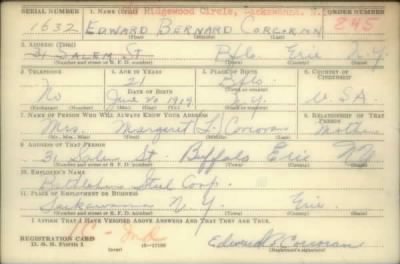 SERIAL NUMBER 1. NAME (Print) Ridgewood Circle, Lackawanna, N.Y. ORDER NUMBER
1632 EDWARD BERNARD CORCORAN 845
(First) (Middle) (Last)
2. ADDRESS (Print)
31 SALEM ST Bflo. Erie N.Y.
(Number and street or R. F. D. number) (Town) (County) (State)
3. TELEPHONE 4. AGE IN YEARS 5. PLACE OF BIRTH 6. COUNTRY OF CITIZENSHIP
21 Bflo.
No DATE OF BIRTH (Town or county)
June 20 1919 N.Y. U.S.A.
7. NAME OF PERSON WHO WILL ALWAYS KNOW YOUR ADDRESS 8. RELATIONSHIP OF THAT PERSON
Mrs. Margaret L. Corcoran Mother
(Mr., Mrs., Miss) (First) (Middle) (Last)
9. ADDRESS OF THAT PERSON
31 Salem St. Buffalo Erie NY
(Number and street or R. F. D. number) (Town) (County) (State)
10. EMPLOYER'S NAME
Bethlehem Steel Corp.
11. PLACE OF EMPLOYMENT OR BUSINESS
Lackawanna N.Y. Erie
(Number and street or R. F. D. number) (Town) (County) (State)
I AFFIRM THAT I HAVE VERIFIED ABOVE ANSWERS AND THAT THEY ARE TRUE.
REGISTRATION CARD
D. S. S. Form 1 (over) 16-17105 Edward B Corcoran
(Registrant's signature)